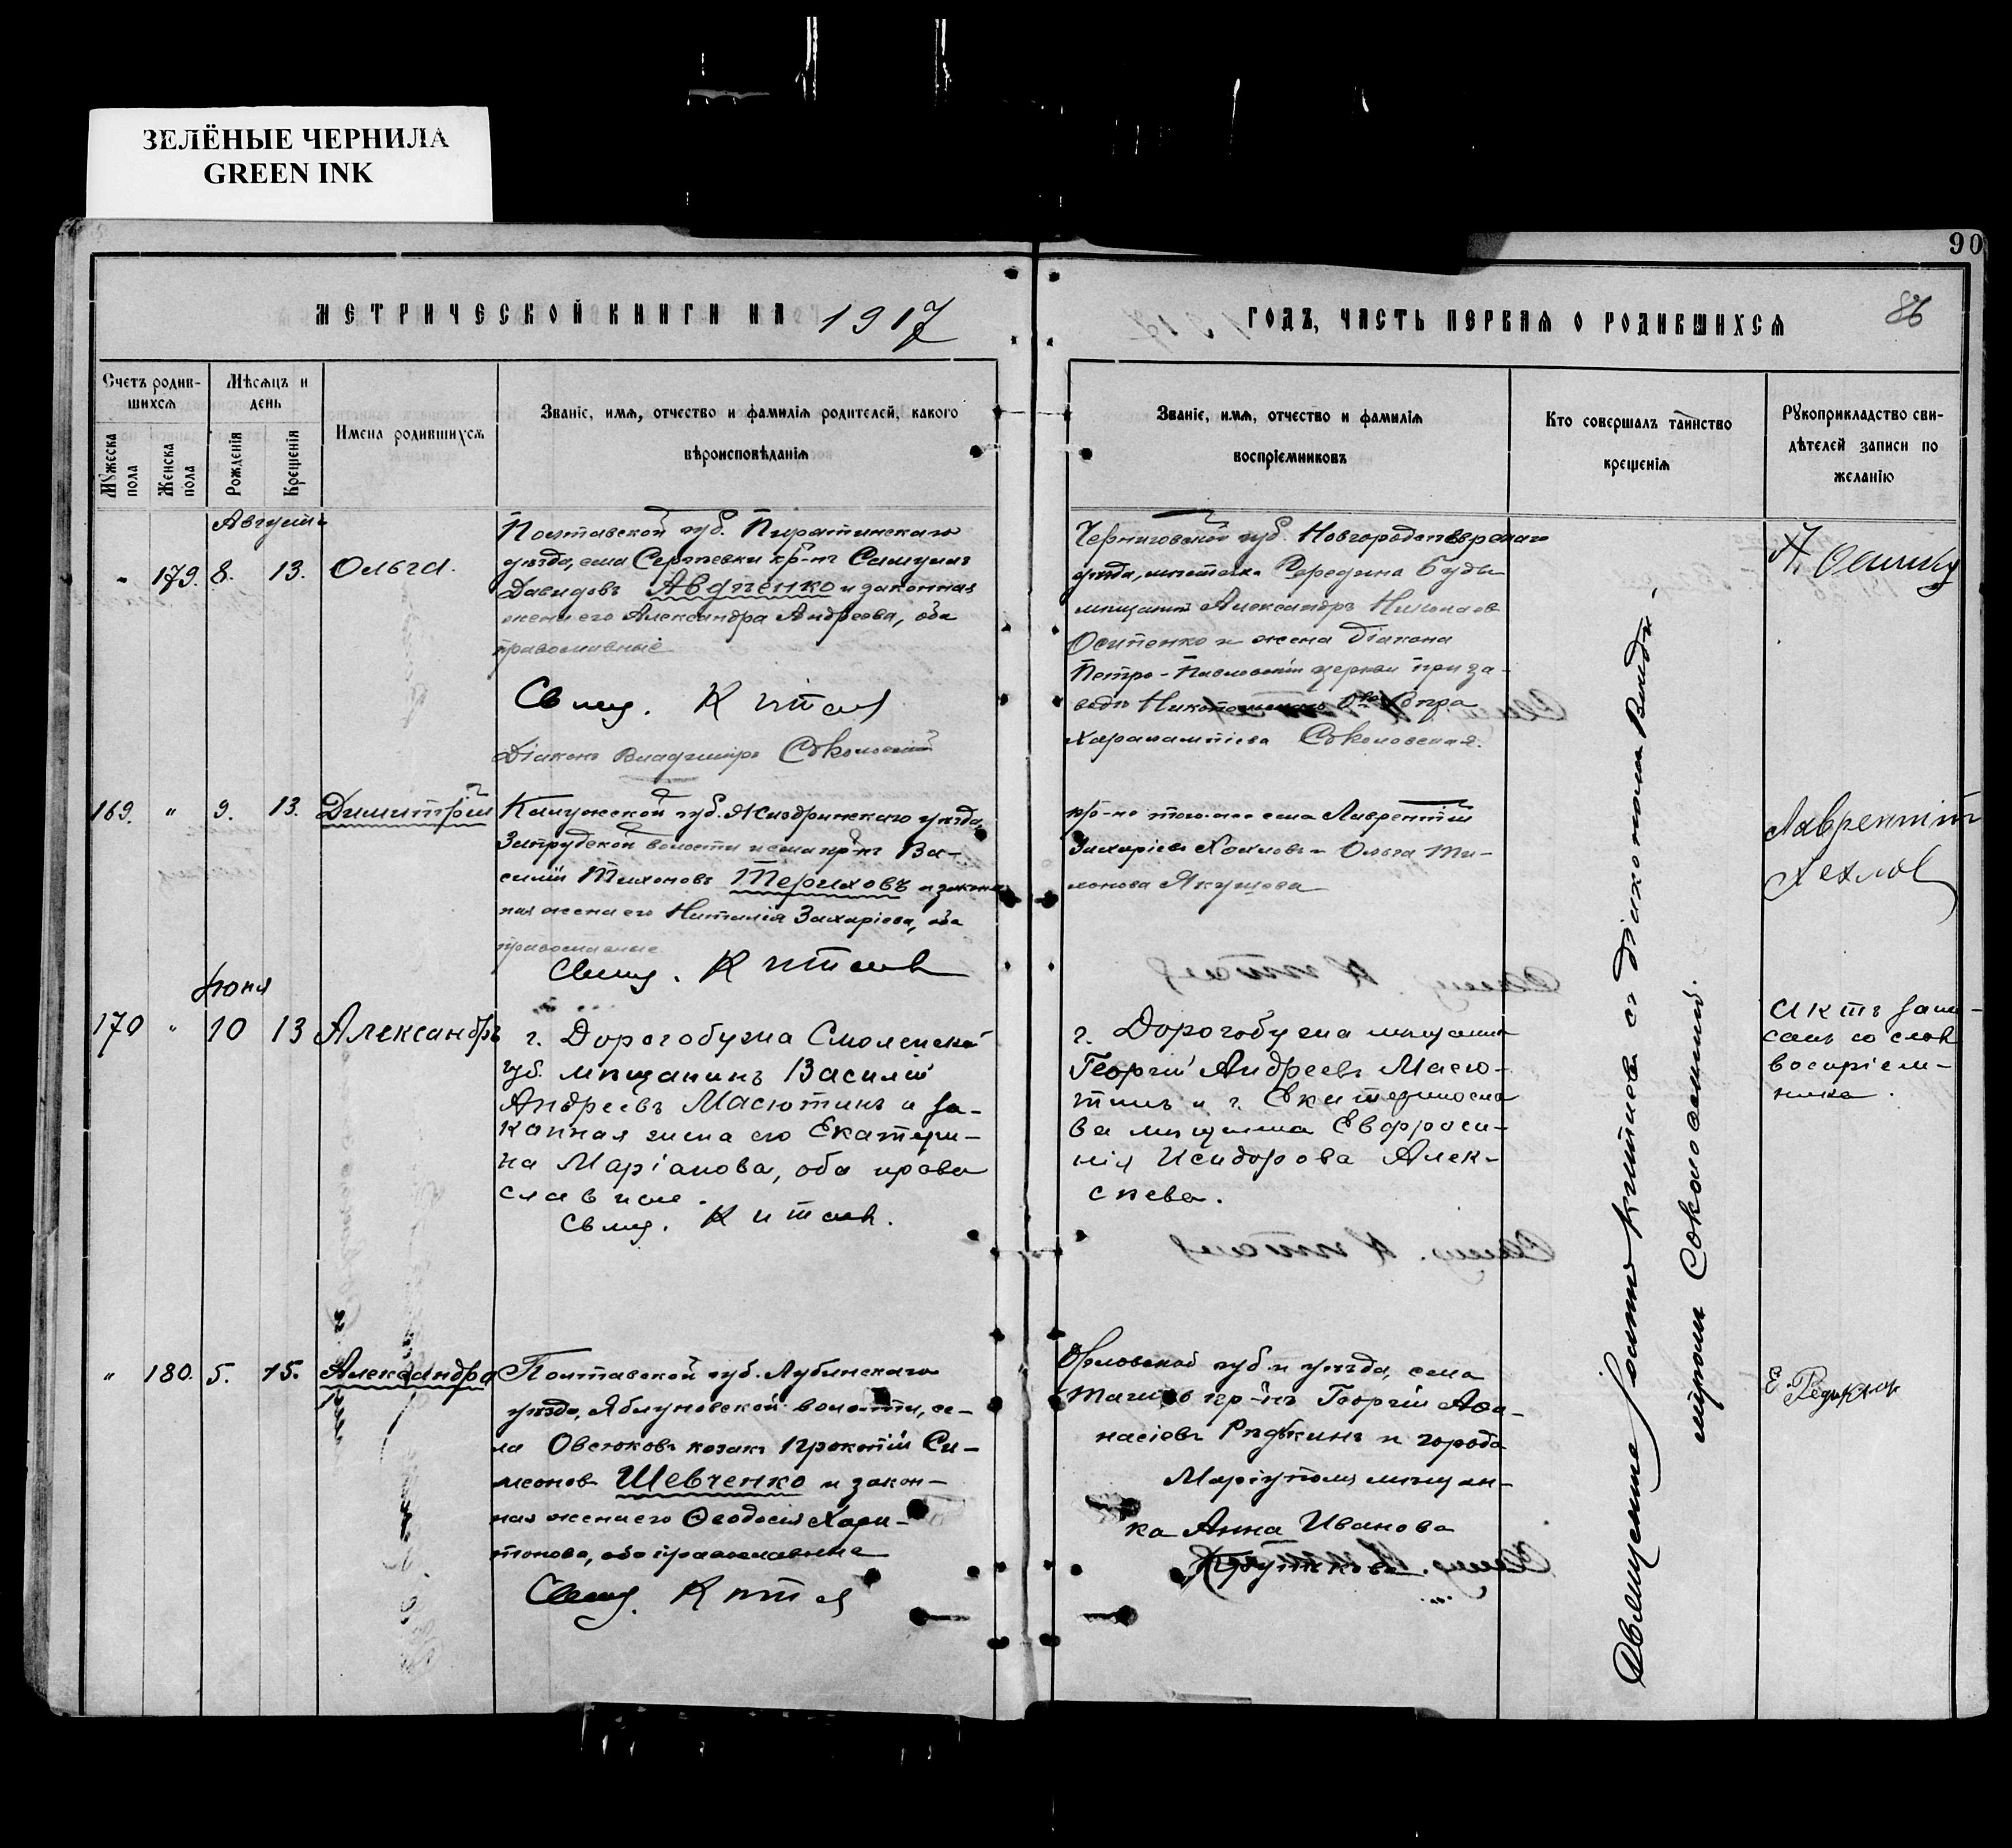 ЗЕЛЁНЫЕ ЧЕРНИЛА
GREEN INK
90
МЕТРИЧЕСКОЙ КНИГИ НА 1917
ГОДЪ, ЧАСТЬ ПЕРВАЯ О РОДИВШИХСЯ
86
Счетъ родив-
шихся
Мѣсяцъ и
день
Мужеска пола
Женска пола
Рожденія
Крещенія
Имена родившихся
Званіе, имя, отчество и фамилія родителей, какого
вѣроисповѣданія
Званіе, имя, отчество и фамилія
воспріемниковъ
Кто совершалъ таинство
крещенія
Рукоприкладство сви-
дѣтелей записи по
желанію
Августъ
" 179. 8. 13. Ольга.
Полтавской губ. Пирятинскаго
уѣзда, села Сергѣевки кр-нъ Самуилъ
Давидовъ Авдѣенко и законная
жена его Александра Андреева, оба
православные
Свящ. Китаев
Діаконъ Владиміръ Соколовскій
Черниговской губ. Новгородсѣверскаго
уѣзда, мѣстечка Середина Буды
мѣщанинъ Александръ Николаев
Осипенко и жена діакона
Петро-Павловской церкви при за-
водѣ Никополь
Харалампіева Соколовская.
А. Осипен
169. " 9. 13. Димитрій
Калужской губ. Жиздринскаго уѣзда,
волости и села кр-нъ Ва-
силій Тихоновъ Териховъ и закон-
ная жена его Наталія Захаріева, оба
православные
Свящ. Китаев
кр-не того-же села Лаврентій
Захаріевъ Хохловъ и Ольга Ти-
монова Якушова
Лаврентій
Хохлов
Іюня
170 " 10 13 Александръ
г. Дорогобужа Смоленской
губ. мѣщанинъ Василій
Андреевъ Масютинъ и за-
конная жена его Екатери-
на Маріанова, оба право
славные.
Свящ. Китаев.
г. Дорогобужа мѣщанинъ
Георгій Андреевъ Масю-
тинъ и г. Екатериносла
ва мѣщанка Евфроси-
нія Исидорова Алек-
сѣева.
Актъ запи-
санъ со слов
воспріем-
ника.
" 180. 5. 15. Александра
Полтавской губ. Лубенскаго
уѣзда, Яблуновской волости, се-
ла Овсюковъ козакъ Прокопій Си-
меонов Шевченко и закон-
ная жена его Ѳеодосія Хари-
тонова, оба православные
Свящ. Китаев
Орловской губ. и уѣзда, села
кр-нъ Георгій Аѳа-
насіевъ Рѣдькинъ и города
Маріуполя мѣщан-
ка Анна Иванова
Е. Редькин
Священникъ Іоаннъ Китаевъ съ діакономъ Влади-
міромъ Соколовскимъ.